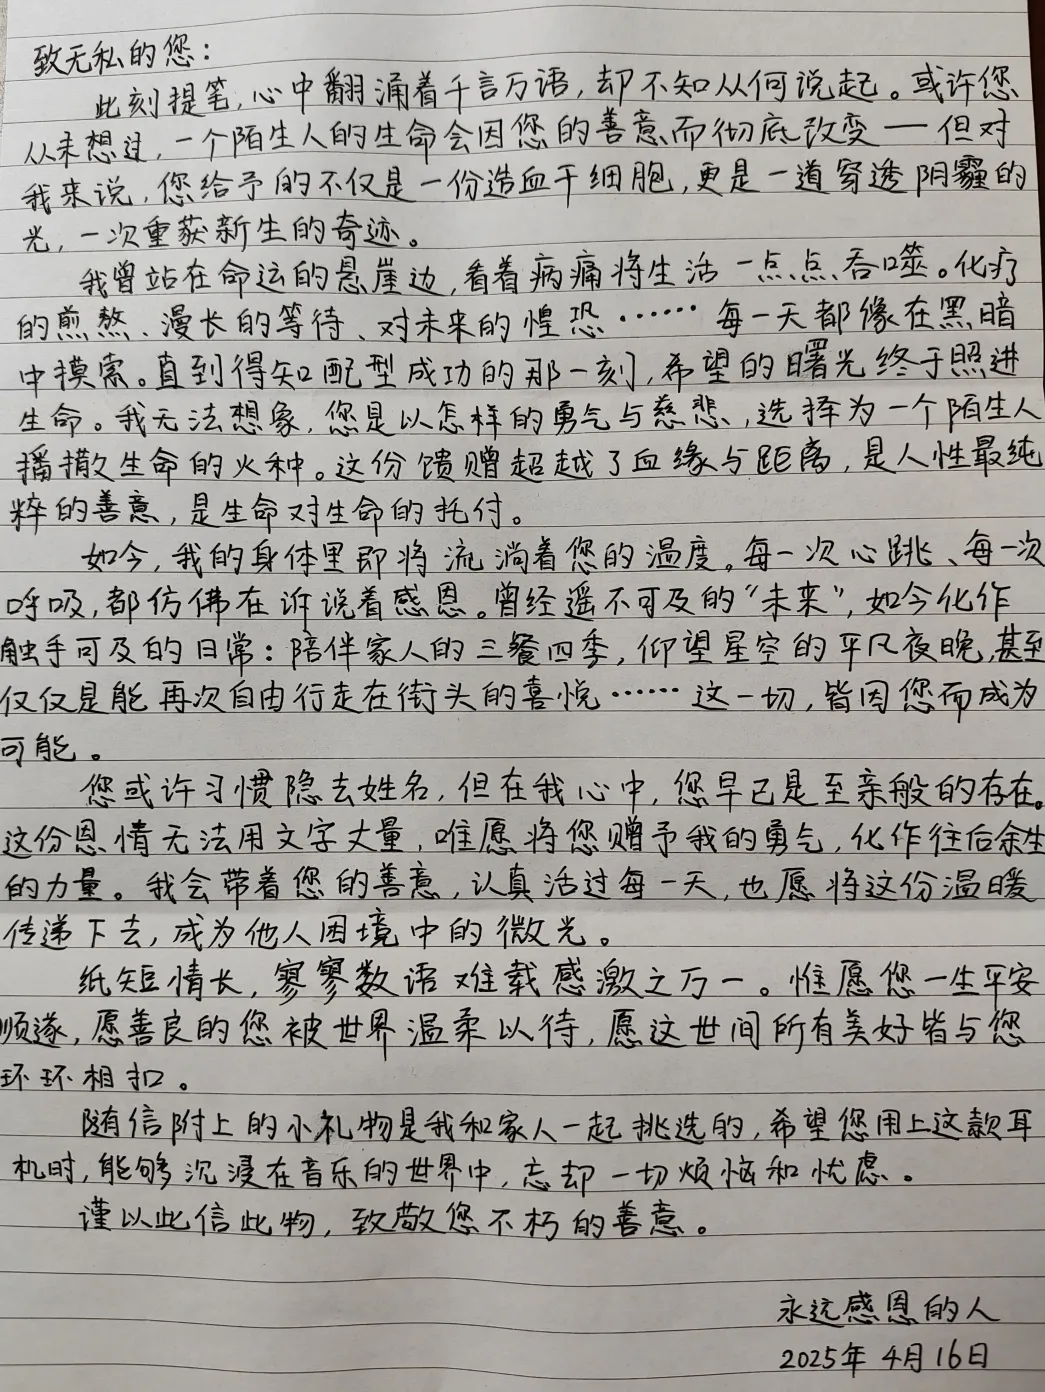 致无私的您：
此刻提笔，心中翻涌着千言万语，却不知从何说起。或许您
从未想过，一个陌生人的生命会因您的善意而彻底改变——但对
我来说，您给予的不仅是一份造血干细胞，更是一道穿透阴霾的
光，一次重获新生的奇迹。
我曾站在命运的悬崖边，看着病痛将生活一点点吞噬。化疗
的煎熬、漫长的等待、对未来的惶恐……每一天都像在黑暗
中摸索。直到得知配型成功的那一刻，希望的曙光终于照进
生命。我无法想象，您是以怎样的勇气与慈悲，选择为一个陌生人
播撒生命的火种。这份馈赠超越了血缘与距离，是人性最纯
粹的善意，是生命对生命的托付。
如今，我的身体里即将流淌着您的温度。每一次心跳、每一次
呼吸，都仿佛在诉说着感恩。曾经遥不可及的“未来”，如今化作
触手可及的日常：陪伴家人的三餐四季，仰望星空的平凡夜晚，甚至
仅仅是能再次自由行走在街头的喜悦……这一切，皆因您而成为
可能。
您或许习惯隐去姓名，但在我心中，您早已是至亲般的存在。
这份恩情无法用文字丈量，唯愿将您赠予我的勇气，化作往后余生
的力量。我会带着您的善意，认真活过每一天，也愿将这份温暖
传递下去，成为他人困境中的微光。
纸短情长，寥寥数语难载感激之万一。惟愿您一生平安
顺遂，愿善良的您被世界温柔以待，愿这世间所有美好皆与您
环环相扣。
随信附上的小礼物是我和家人一起挑选的，希望您用上这款耳
机时，能够沉浸在音乐的世界中，忘却一切烦恼和忧虑。
谨以此信此物，致敬您不朽的善意。
永远感恩的人
2025年4月16日